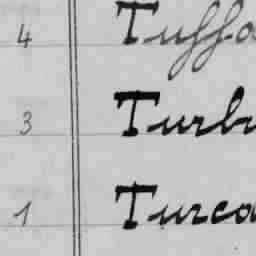 4 Tuffo
3 Turb
1 Turca